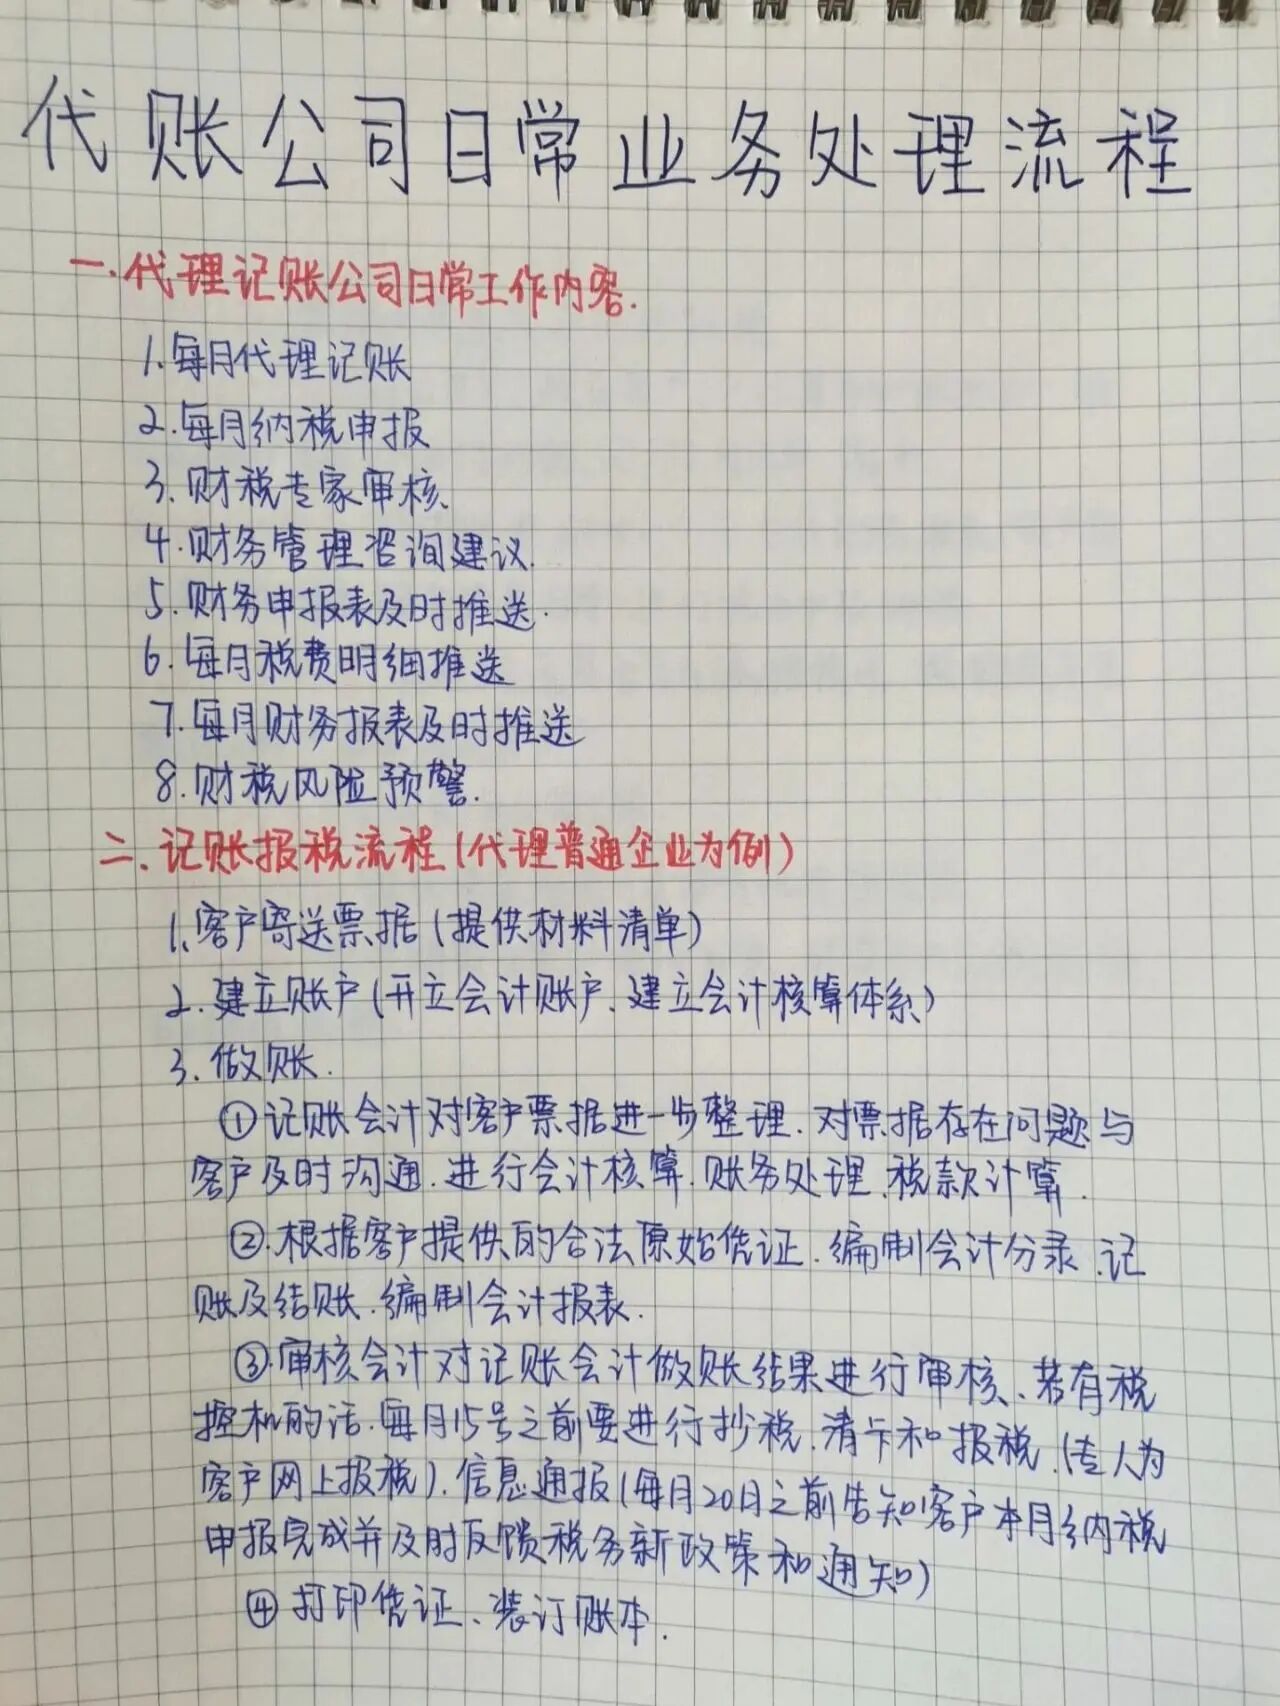 代账公司日常业务处理流程
一.代理记账公司日常工作内容.
1.每月代理记账
2.每月纳税申报
3.财税专家审核.
4.财务管理咨询建议.
5.财务申报表及时推送.
6.每月税费明细推送
7.每月财务报表及时推送
8.财税风险预警.
二.记账报税流程(代理普通企业为例)
1.客户寄送票据(提供材料清单)
2.建立账户(开立会计账户、建立会计核算体系)
3.做账.
①记账会计对客户票据进一步整理、对票据存在问题与
客户及时沟通.进行会计核算.账务处理、税款计算.
②.根据客户提供的合法原始凭证、编制会计分录、记
账及结账、编制会计报表.
③.审核会计对记账会计做账结果进行审核、若有税
控机的话.每月15号之前要进行抄税、清卡和报税、(专人为
客户网上报税)、信息通报(每月20日之前告知客户本月纳税
申报完成并及时反馈税务新政策和通知)
④打印凭证、装订账本.